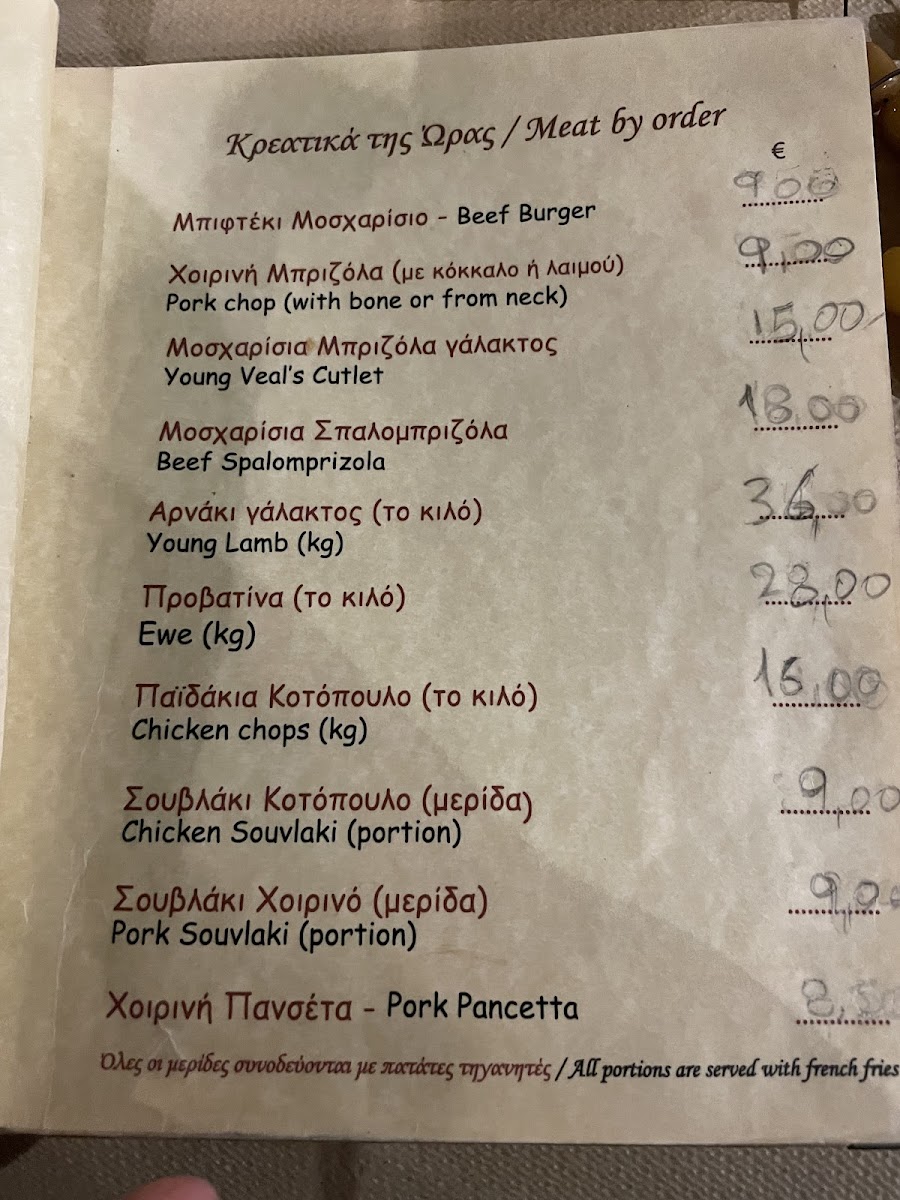 Κρεατικά της Ώρας / Meat by order
€
Μπιφτέκι Μοσχαρίσιο - Beef Burger 9 00
Χοιρινή Μπριζόλα (με κόκκαλο ή λαιμού) 9,00
Pork chop (with bone or from neck)
Μοσχαρίσια Μπριζόλα γάλακτος 15,00
Young Veal's Cutlet
Μοσχαρίσια Σπαλομπριζόλα 18.00
Beef Spalomprizola
Αρνάκι γάλακτος (το κιλό)
Young Lamb (kg)
Προβατίνα (το κιλό) 28,00
Ewe (kg)
Παϊδάκια Κοτόπουλο (το κιλό)
Chicken chops (kg)
Σουβλάκι Κοτόπουλο (μερίδα) 9,00
Chicken Souvlaki (portion)
Σουβλάκι Χοιρινό (μερίδα) 9,0
Pork Souvlaki (portion)
Χοιρινή Πανσέτα - Pork Pancetta 8,50
Όλες οι μερίδες συνοδεύονται με πατάτες τηγανητές / All portions are served with french fries